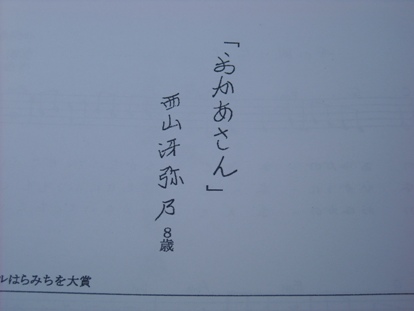 「おかあさん」
西山冴弥乃 8歳
ルはらみちを大賞